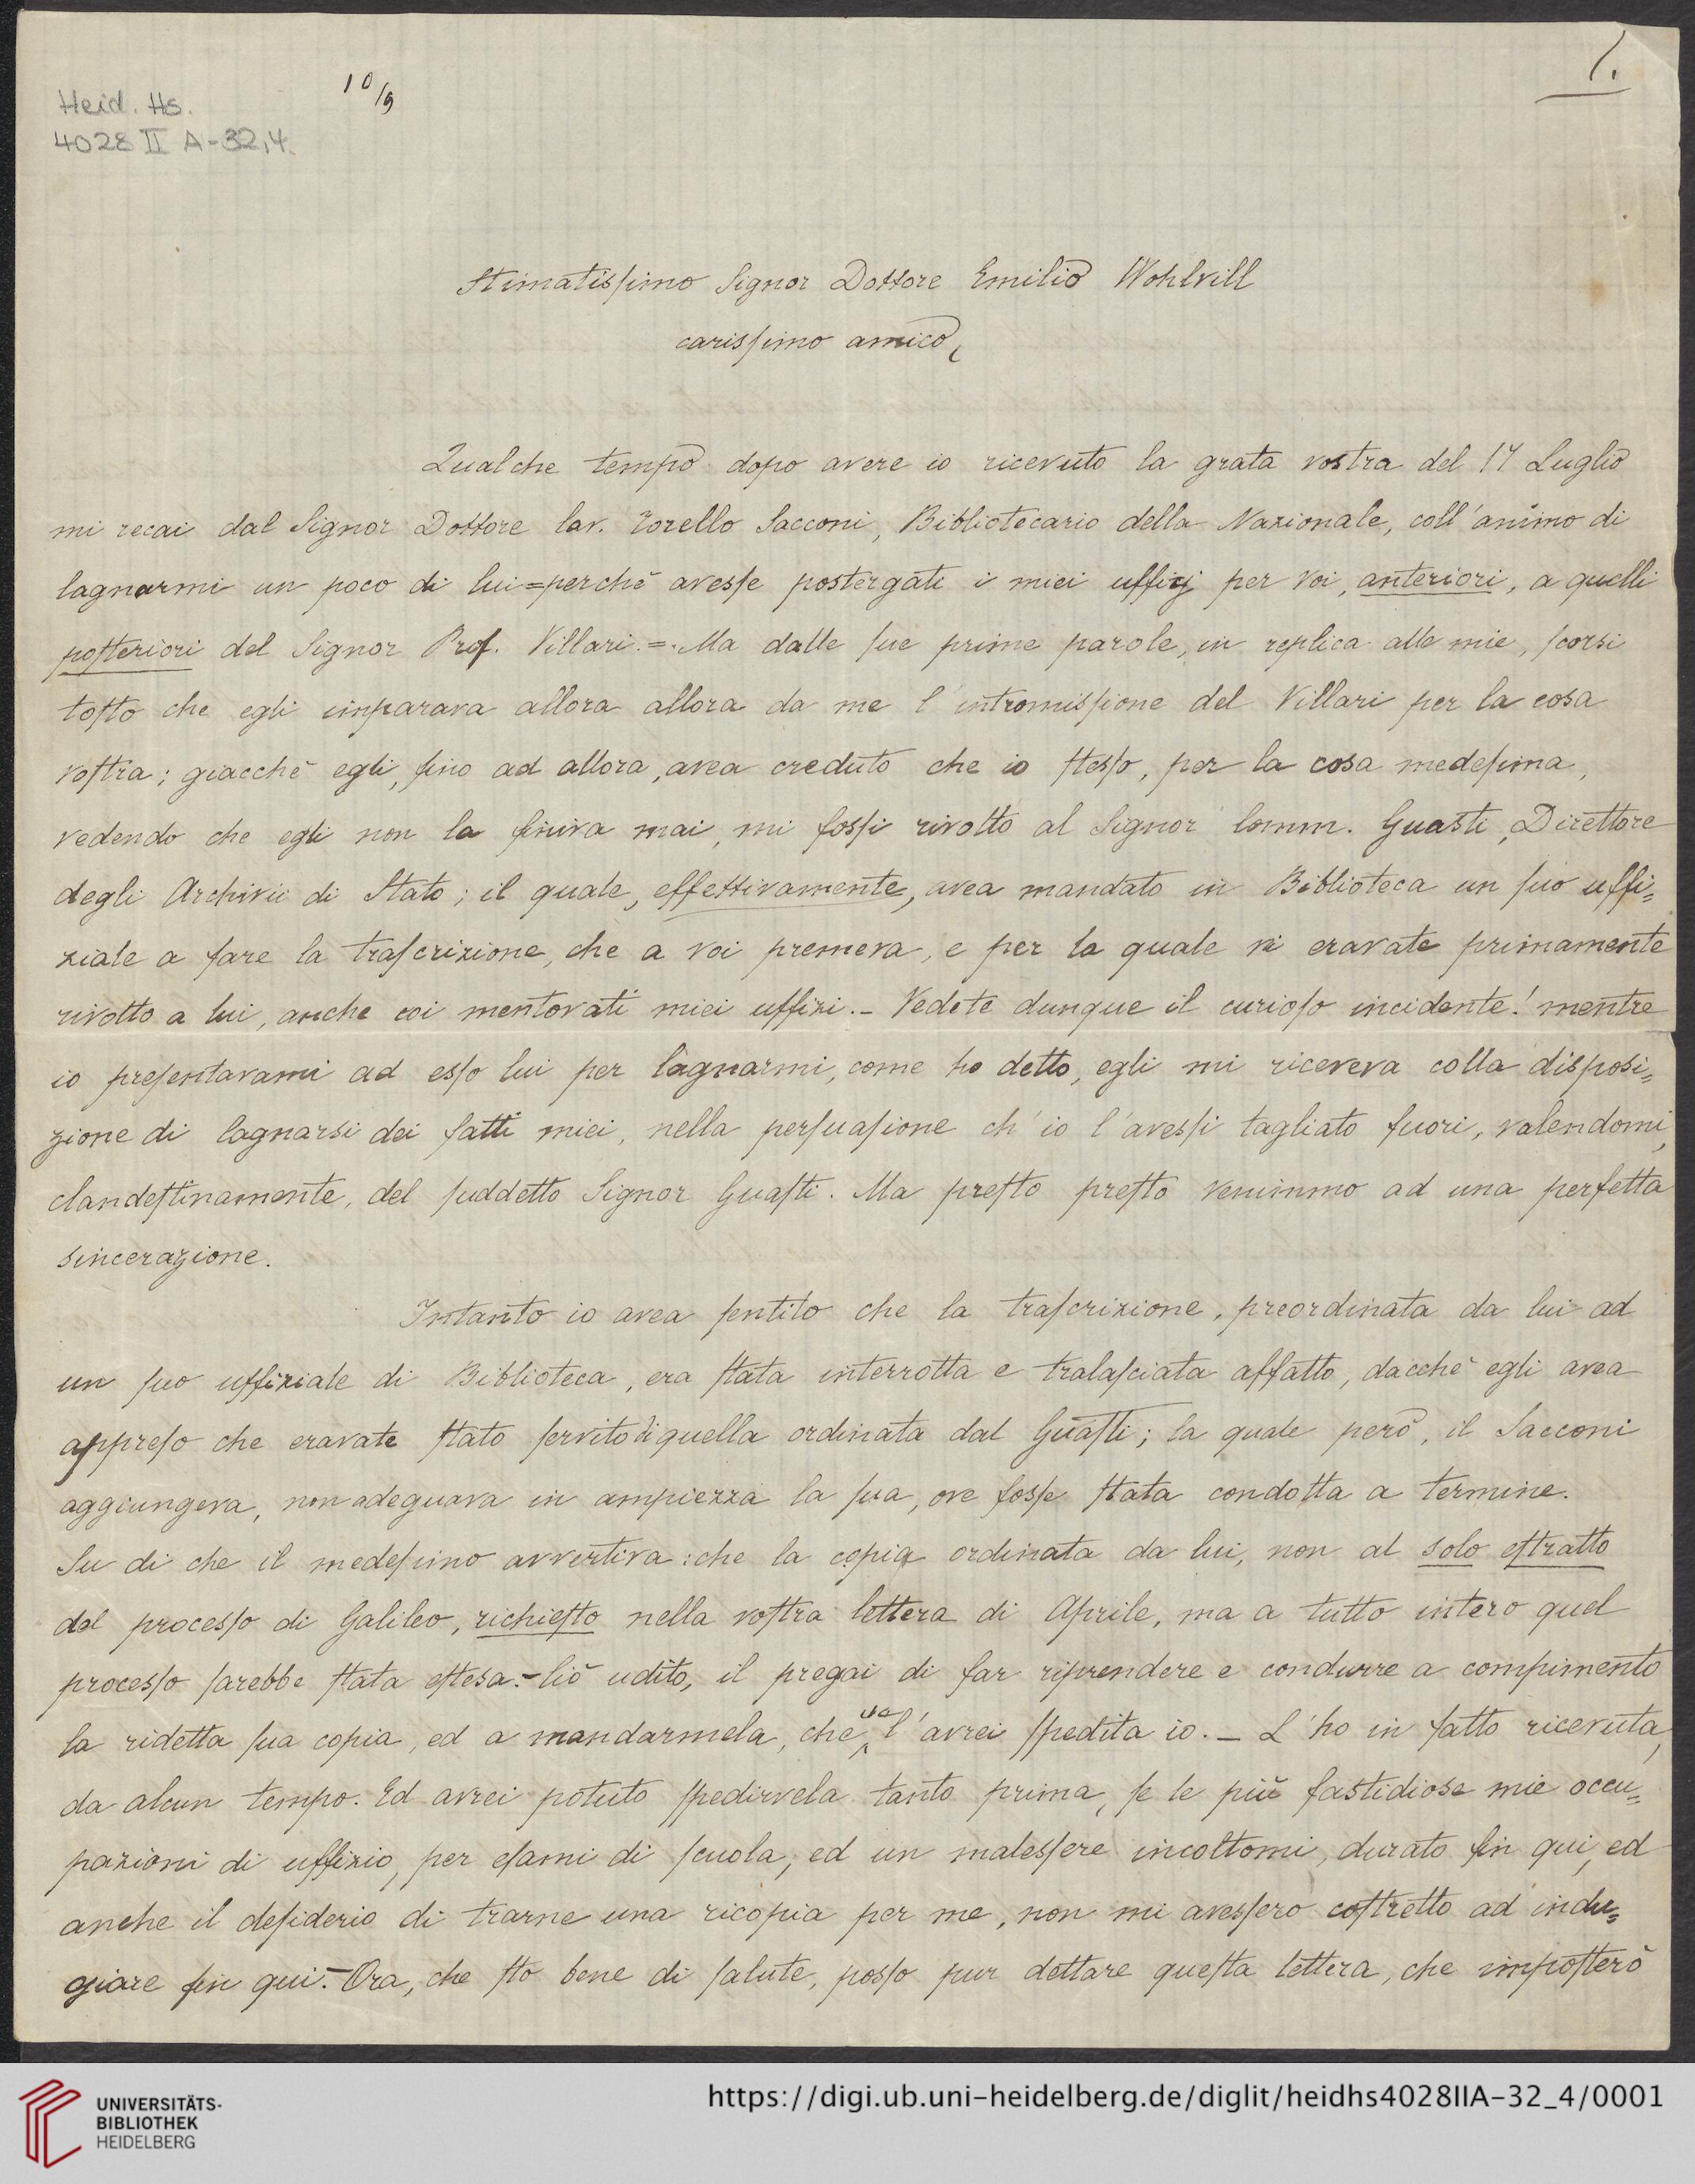 Heid. Hs.
4028 II A-32,4.
10/9
1.
Stimatissimo Signor Dottore Emilio Wohlvill
carissimo amico,
Qualche tempo dopo avere io ricevuto la grata vostra del 17 Luglio
mi recai dal Signor Dottore Cav. Torello Sacconi, Bibliotecario della Nazionale, coll'animo di
lagnarmi un poco di lui = perchè avesse postergati i miei uffizj per voi, anteriori, a quelli
posteriori del Signor Prof. Villari. = Ma dalle sue prime parole, in replica alle mie, scorsi
tosto che egli imparava allora allora da me l'intromissione del Villari per la cosa
vostra; giacchè egli, fino ad allora, avea creduto che io stesso, per la cosa medesima,
vedendo che egli non la finiva mai, mi fossi rivolto al Signor Comm. Guasti, Direttore
degli Archivii di Stato; il quale, effettivamente, avea mandato in Biblioteca un suo uffi=
ziale a fare la trascrizione, che a voi premeva, e per la quale vi eravate primamente
rivolto a lui, anche coi mentovati miei uffizi. - Vedete dunque il curioso incidente! mentre
io presentavami ad esso lui per lagnarmi, come ho detto, egli mi riceveva colla disposi=
zione di lagnarsi dei fatti miei, nella persuasione ch'io l'avessi tagliato fuori, valendomi,
clandestinamente, del suddetto Signor Guasti. Ma presto presto venimmo ad una perfetta
sincerazione.
Intanto io avea sentito che la trascrizione, preordinata da lui ad
un suo uffiziale di Biblioteca, era stata interrotta e tralasciata affatto, dacchè egli avea
appreso che eravate stato servito di quella ordinata dal Guasti; la quale però, il Sacconi
aggiungeva, non adeguava in ampiezza la sua, ove fosse stata condotta a termine.
Su di che il medesimo avvertiva: che la copia ordinata da lui, non al solo estratto
del processo di Galileo, richiesto nella vostra lettera di Aprile, ma a tutto intero quel
processo sarebbe stata estesa. - Ciò udito, il pregai di far riprendere e condurre a compimento
la ridetta sua copia, ed a mandarmela, che ve l'avrei spedita io. - L'ho in fatto ricevuta,
da alcun tempo. Ed avrei potuto spedirvela tanto prima, se le più fastidiose mie occu=
pazioni di uffizio, per esami di scuola, ed un malessere incoltomi, durato fin qui, ed
anche il desiderio di trarne una ricopia per me, non mi avessero costretto ad indu=
giare fin qui. - Ora, che sto bene di salute, posso pur dettare questa lettera, che imposterò
UNIVERSITÄTS-
BIBLIOTHEK
HEIDELBERG
https://digi.ub.uni-heidelberg.de/diglit/heidhs4028IIA-32_4/0001